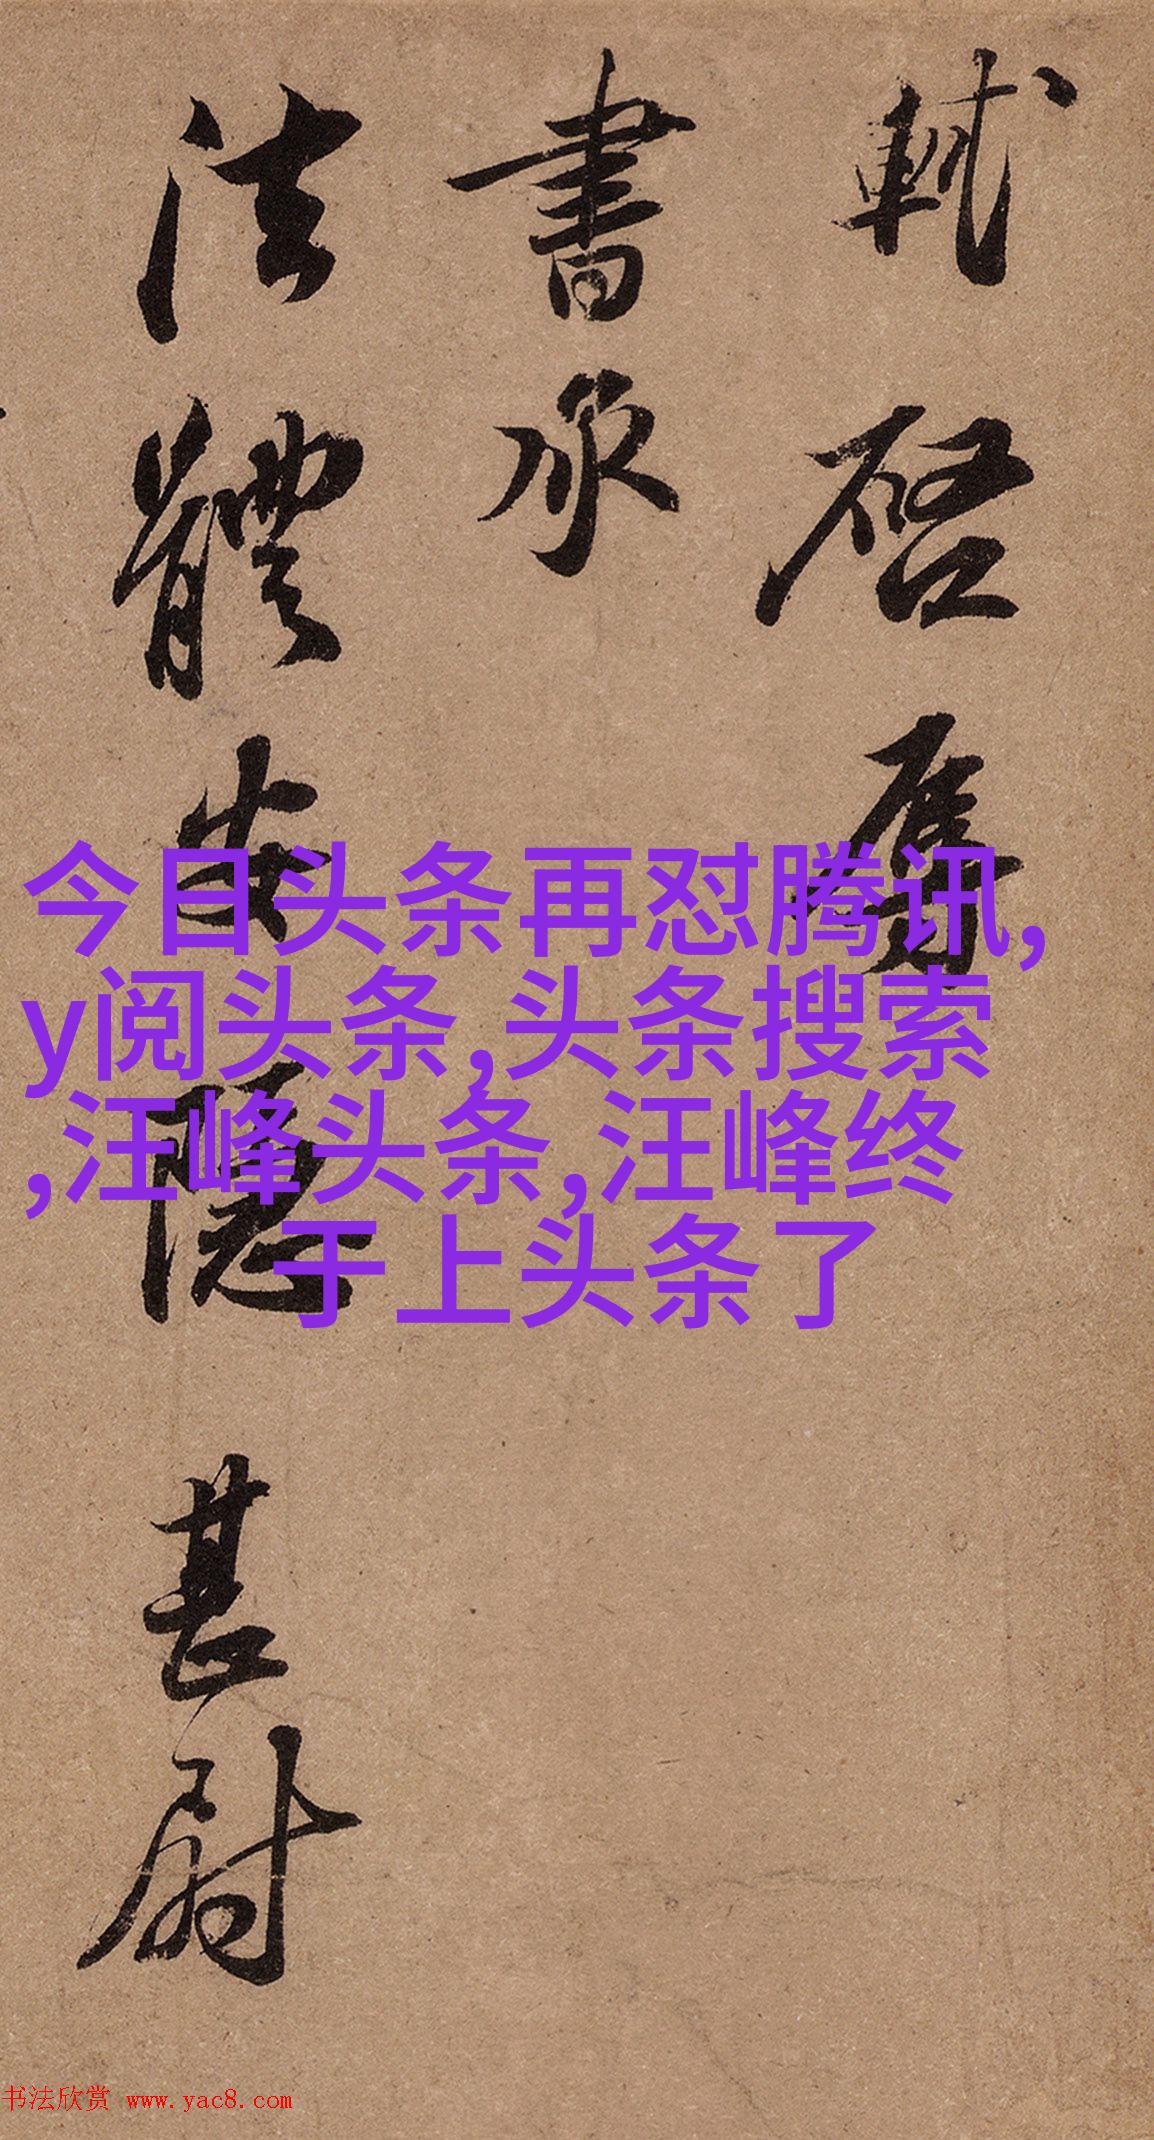 軾啓辱
書承
法體安隱甚尉
今日头条再怼腾讯,
y阅头条,头条搜索
,汪峰头条,汪峰终
于上头条了
书法欣赏 www.yac8.com